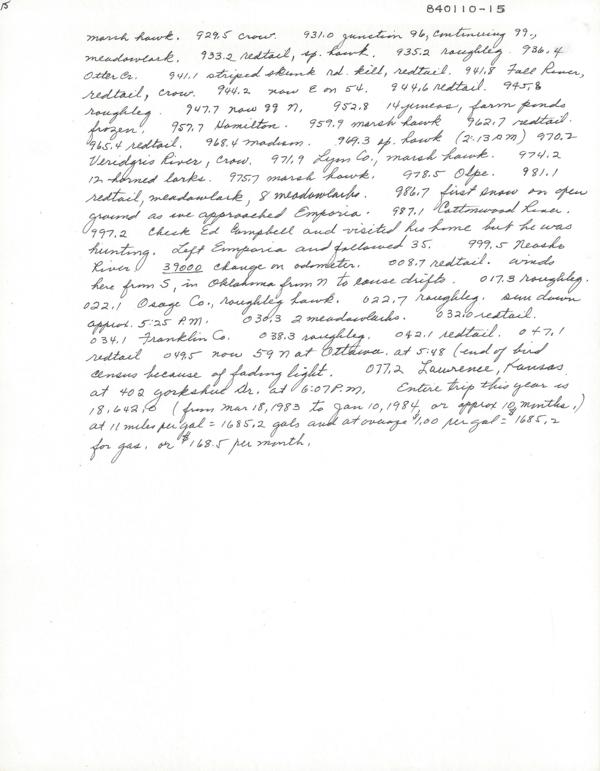 15
840110-15
marsh hawk. 929.5 crow. 931.0 junction 96, continuing 99.,
meadowlark. 933.2 redtail, sp. hawk. 935.2 roughleg. 936.4
Otter Cr. 941.1 striped skunk rd. kill, redtail. 941.8 Fall River,
redtail, crow. 944.2 now E on 54. 944.6 redtail. 945.8
roughleg. 947.7 now 99 N. 952.8 14 juncos, farm ponds
frozen. 957.7 Hamilton. 959.9 marsh hawk 962.7 redtail.
965.4 redtail. 968.4 madison. 969.3 sp. hawk (2:13 PM) 970.2
Verdigris River, crow. 971.9 Lyon Co., marsh hawk. 974.2
12 horned larks. 975.7 marsh hawk. 978.5 Olpe. 981.1
redtail, meadowlark, 8 meadowlarks. 986.7 first snow on open
ground as we approached Emporia. 987.1 Cottonwood River.
997.2 Check Ed Campbell and visited his home but he was
hunting. Left Emporia and followed 35. 999.5 Neosho
River 39000 change on odometer. 008.7 redtail. winds
here from S, in Oklahoma from N to cause drifts. 017.3 roughleg.
022.1 Osage Co., roughleg hawk. 022.7 roughleg. sun down
approx. 5:25 P.M. 030.3 2 meadowlarks. 032.0 redtail.
034.1 Franklin Co. 038.3 roughleg. 042.1 redtail. 047.1
redtail 049.5 now 59 N at Ottawa. at 5:48 (end of bird
census because of fading light. 077.2 Lawrence, Kansas
at 402 Yorkshire Dr. at 6:07 P.M. Entire trip this year is
18,642.0 (from Mar 18, 1983 to Jan 10, 1984, or approx 10 months.)
at 11 miles per gal = 1685.2 gals and at average $1.00 per gal = 1685.2
for gas. or $168.5 per month.